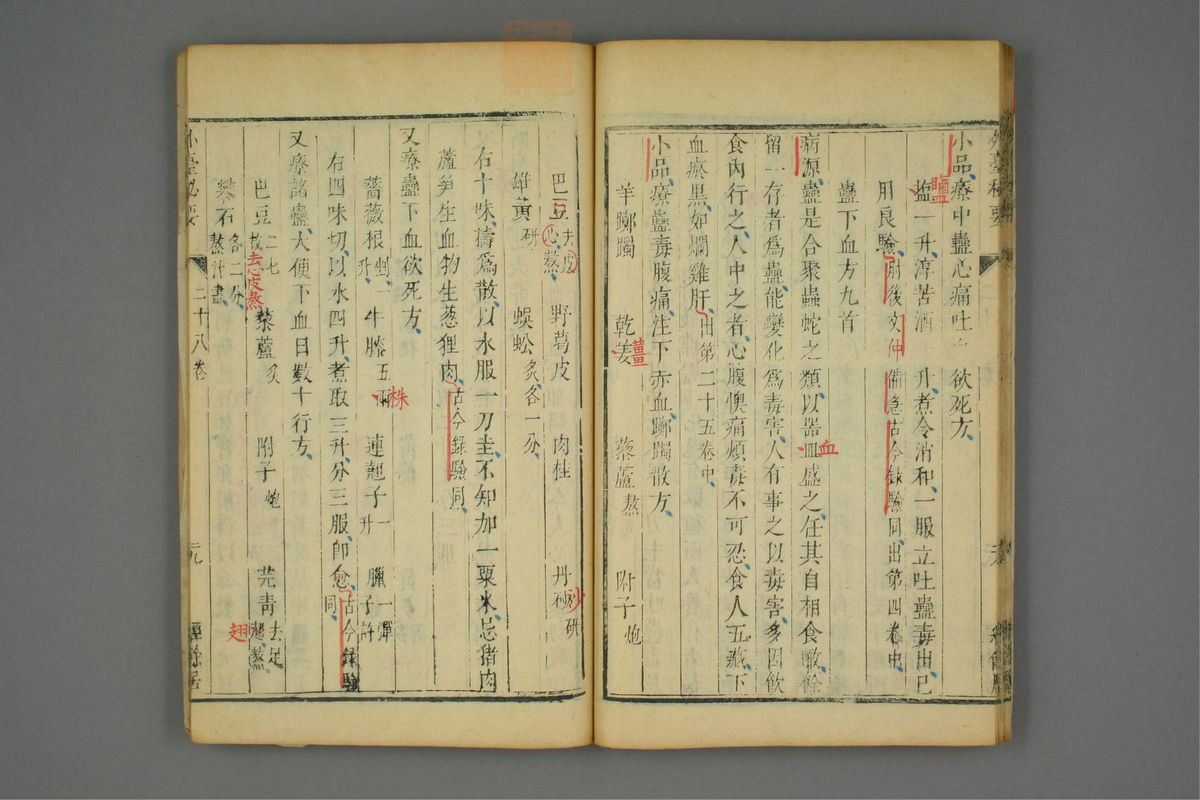 外臺秘要
小品療中蠱心痛吐血欲死方
鹽
塩一升淳苦酒一升煮令消和一服立吐蠱毒出已
用良驗肘後文仲備急古今錄驗同出第四卷中
蠱下血方九首
病源蠱是合聚蟲蛇之類以器皿盛之任其自相食噉餘
血
留一存者爲蠱能變化爲毒害人有事之以毒害多因飲
食內行之人中之者心腹懊痛煩毒不可忍食人五藏下
血瘀黑如爛雞肝出第二十五卷中
小品療蠱毒腹痛注下赤血躑躅散方
羊躑躅 乾姜 藜蘆熬 附子炮
薑
巴豆去皮心熬 野葛皮 肉桂 丹砂研
砂
雄黃研 蜈蚣炙各一分
右十味擣爲散以水服一刀圭不知加一粟米忌猪肉
蘆笋生血物生葱狸肉古今錄驗同
又療蠱下血欲死方
薔薇根剉一升 牛膝五兩 連翹子一升 臘一彈子許
株
右四味切以水四升煮取三升分三服卽愈古今錄驗同
又療諸蠱大便下血日數十行方
巴豆二七枚 藜蘆炙 附子炮 芫青去足翅熬
去心皮熬
翅
礬石各二分熬汁盡
外臺秘要 二十八卷